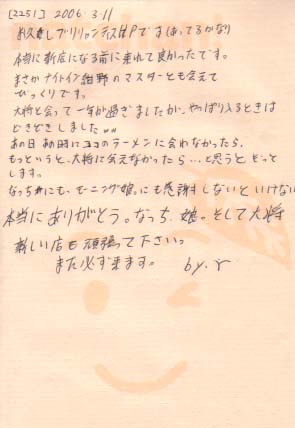 [2251] 2006 3.11
お久しブリリャンティスHPです(はってるかな)
本当に新店になる前に来れて良かったです。
まさかナイトイン紺野のマスターとも会えて
びっくりです。
大将と会って一年が過ぎましたが、やっぱり入るときは
どきどきしました〃〃
あの日あの時にココのラーメンに会わなかったら、
もっというと、大将に会えなかったら…と思うとぞっと
します。
なっちにも、モーニング娘。にも感謝しないといけない
本当にありがとう。なっち、娘。そして大将
新しい店も頑張って下さい。
また必ず来ます。 by.r